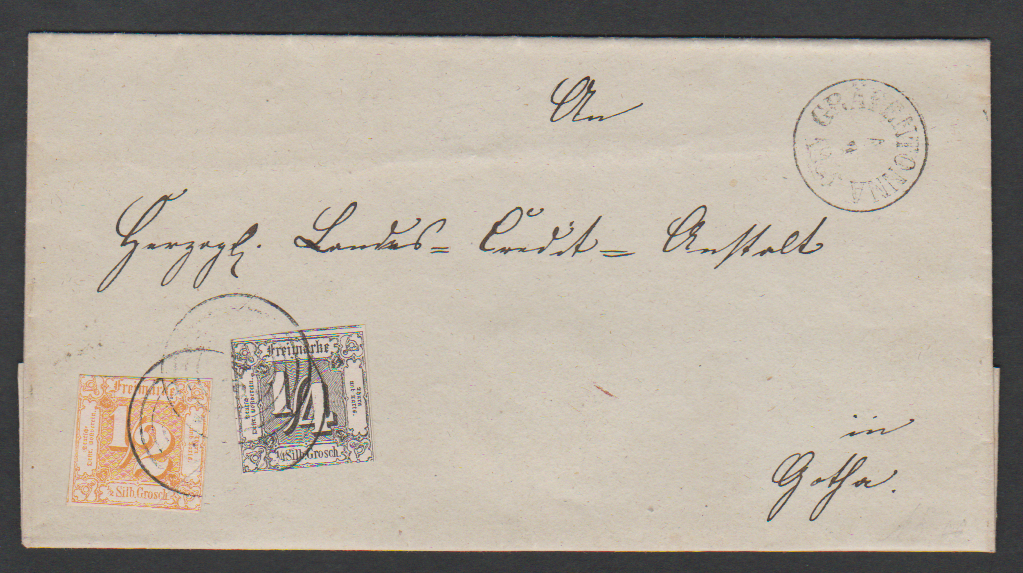 An
GRÄFENTONNA
Herzogl. Landes= Credit= Anstalt
Freimarke
1/4
1/4 Silb. Grosch.
Freimarke
1/2
1/2 Silb. Grosch.
in
Gotha.